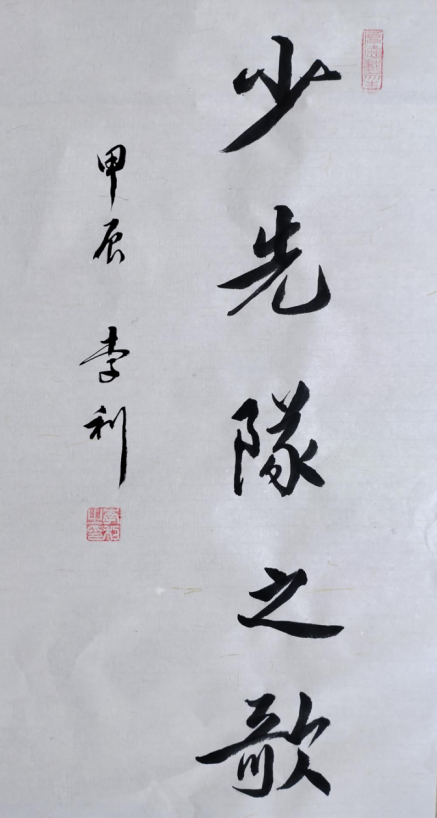 少先隊之歌
甲辰 李利